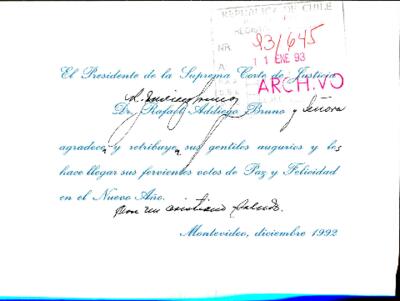 REPUBLICA DE CHILE
NR. 93/645
A 11 ENE 93
ARCHIVO
El Presidente de la Suprema Corte de Justicia
Dr. Rafael Addiego Bruno y Señora
agradecen y retribuyen sus gentiles augurios y les
hace llegar sus fervientes votos de Paz y Felicidad
en el Nuevo Año.
Con un cristiano saludo.
Montevideo, diciembre 1992